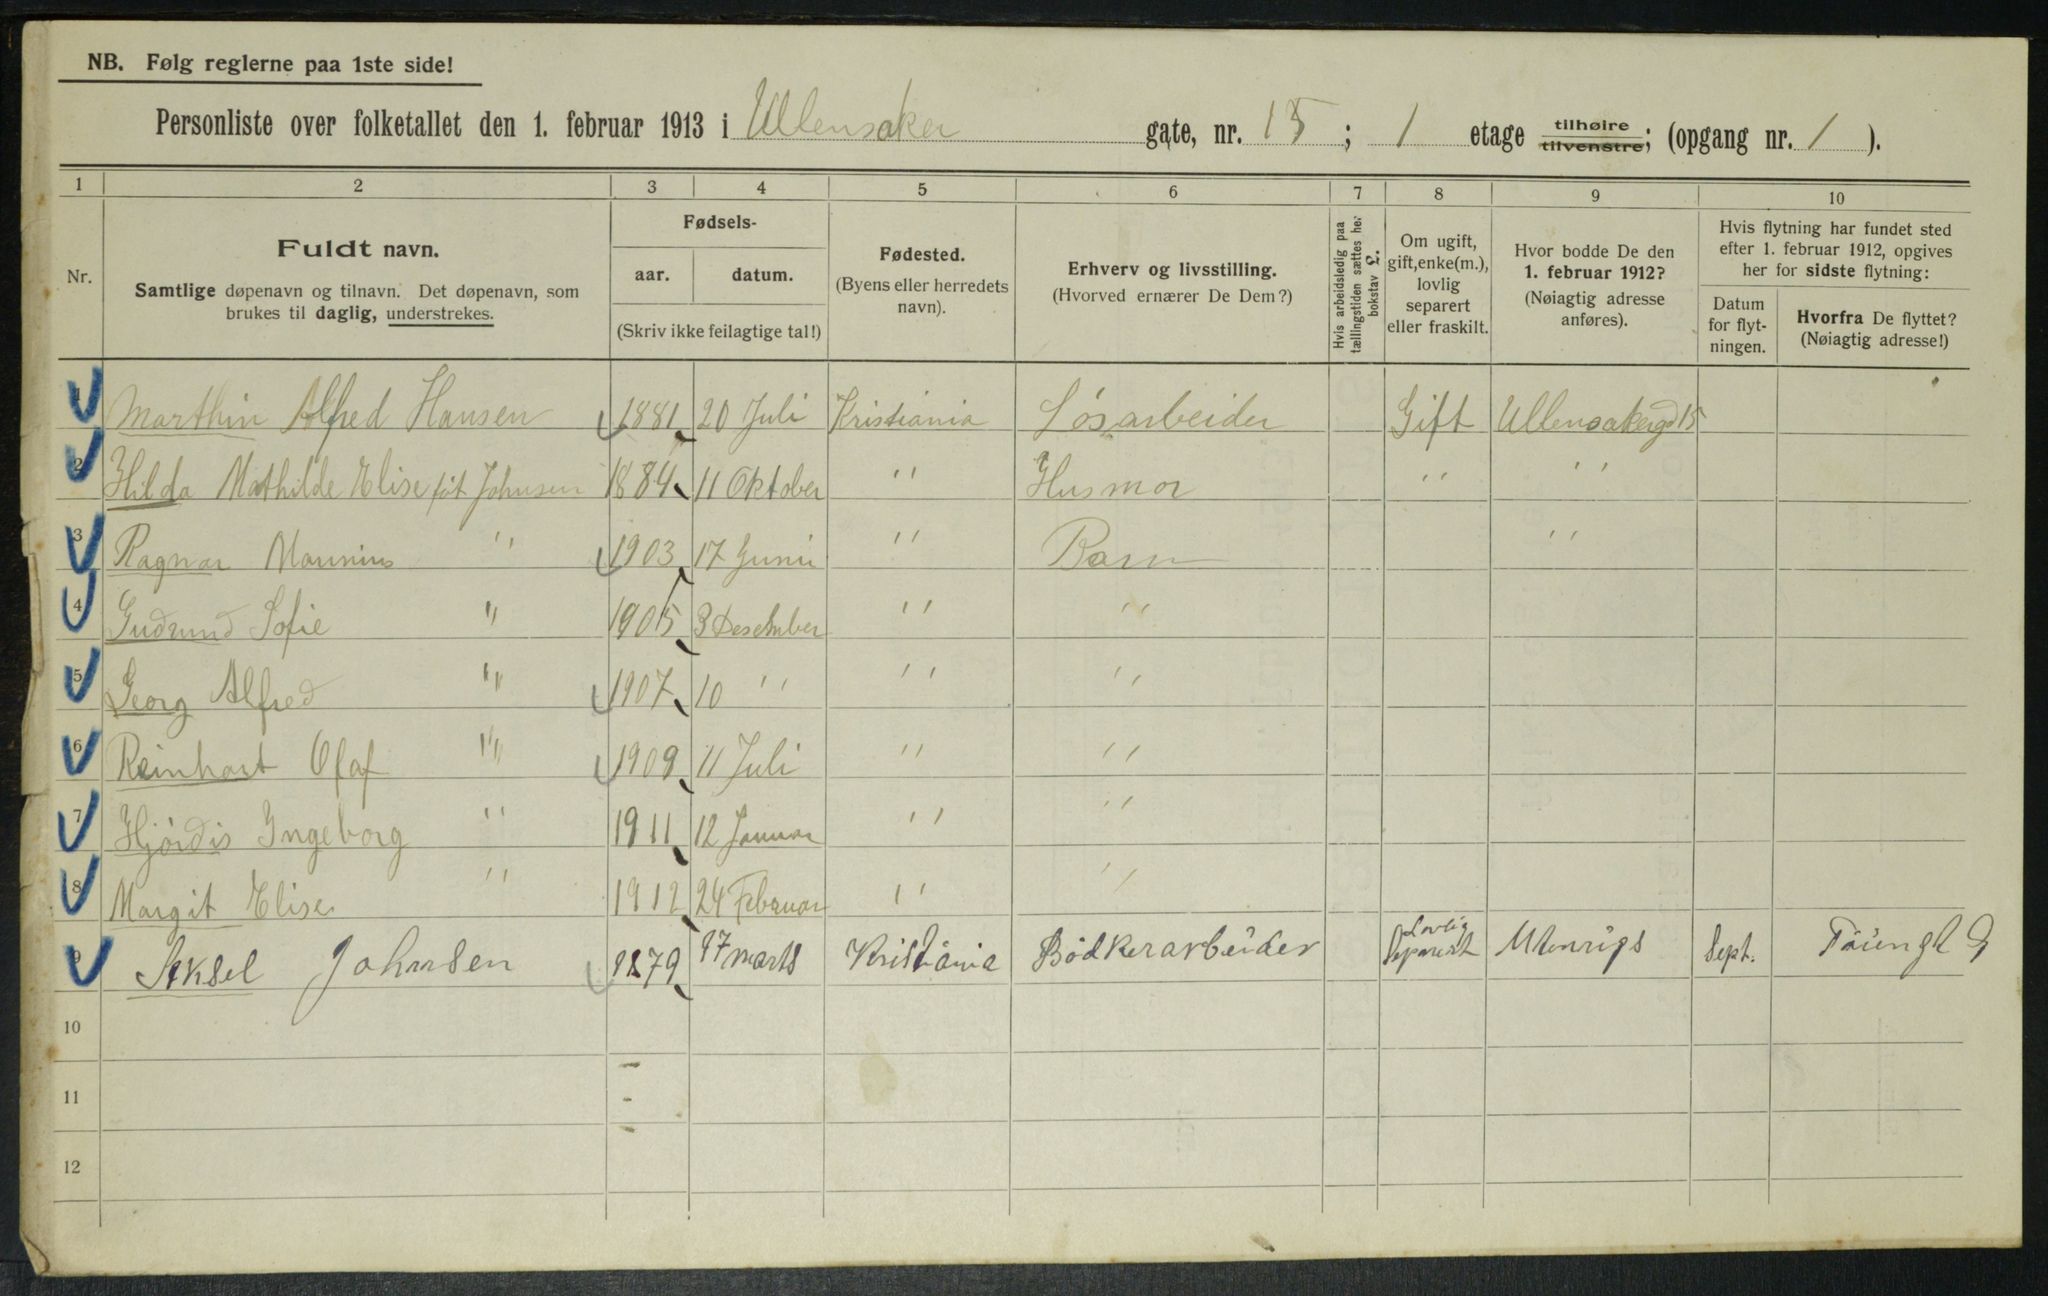 NB. Følg reglerne paa 1ste side!
Personliste over folketallet den 1. februar 1913 i Ullensaker gate, nr. 15 ; 1 etage tilhøire tilvenstre; (opgang nr. 1 ).
1 2 3 4 5 6 7 8 9 10
Nr.
Fuldt navn.
Samtlige døpenavn og tilnavn. Det døpenavn, som
brukes til daglig, understrekes.
Fødsels-
aar. datum.
(Skriv ikke feilagtige tal!)
Fødested.
(Byens eller herredets
navn).
Erhverv og livsstilling.
(Hvorved ernærer De Dem?)
Hvis arbeidsledig paa
tællingstiden sættes her
bokstav L.
Om ugift,
gift, enke(m.),
lovlig
separert
eller fraskilt.
Hvor bodde De den
1. februar 1912?
(Nøiagtig adresse
anføres).
Hvis flytning har fundet sted
efter 1. februar 1912, opgives
her for sidste flytning:
Datum
for flyt-
ningen.
Hvorfra De flyttet?
(Nøiagtig adresse!)
1 Marthin Alfred Hansen 1881 20 Juli Kristiania Løsarbeider Gift Ullensakergd 15
2 Hilda Mathilde Elise føt Johnsen 1884 11 Oktober " Husmor " "
3 Ragnar " 1903 17 Juni " Barn "
4 Gudrund Sofie " 1905 3 Desember " "
5 Georg Alfred " 1907 10 " " "
6 Reinhart Olaf " 1909 11 Juli " "
7 Hjördis Ingeborg " 1911 12 Januar " "
8 Margit Elise " 1912 24 Februar " "
9 Aksel Johnsen 1879 17 marts Kristiania Bødkerarbeider Lovlig Seperert Utenrigs Sept. Töiengt 9
10
11
12